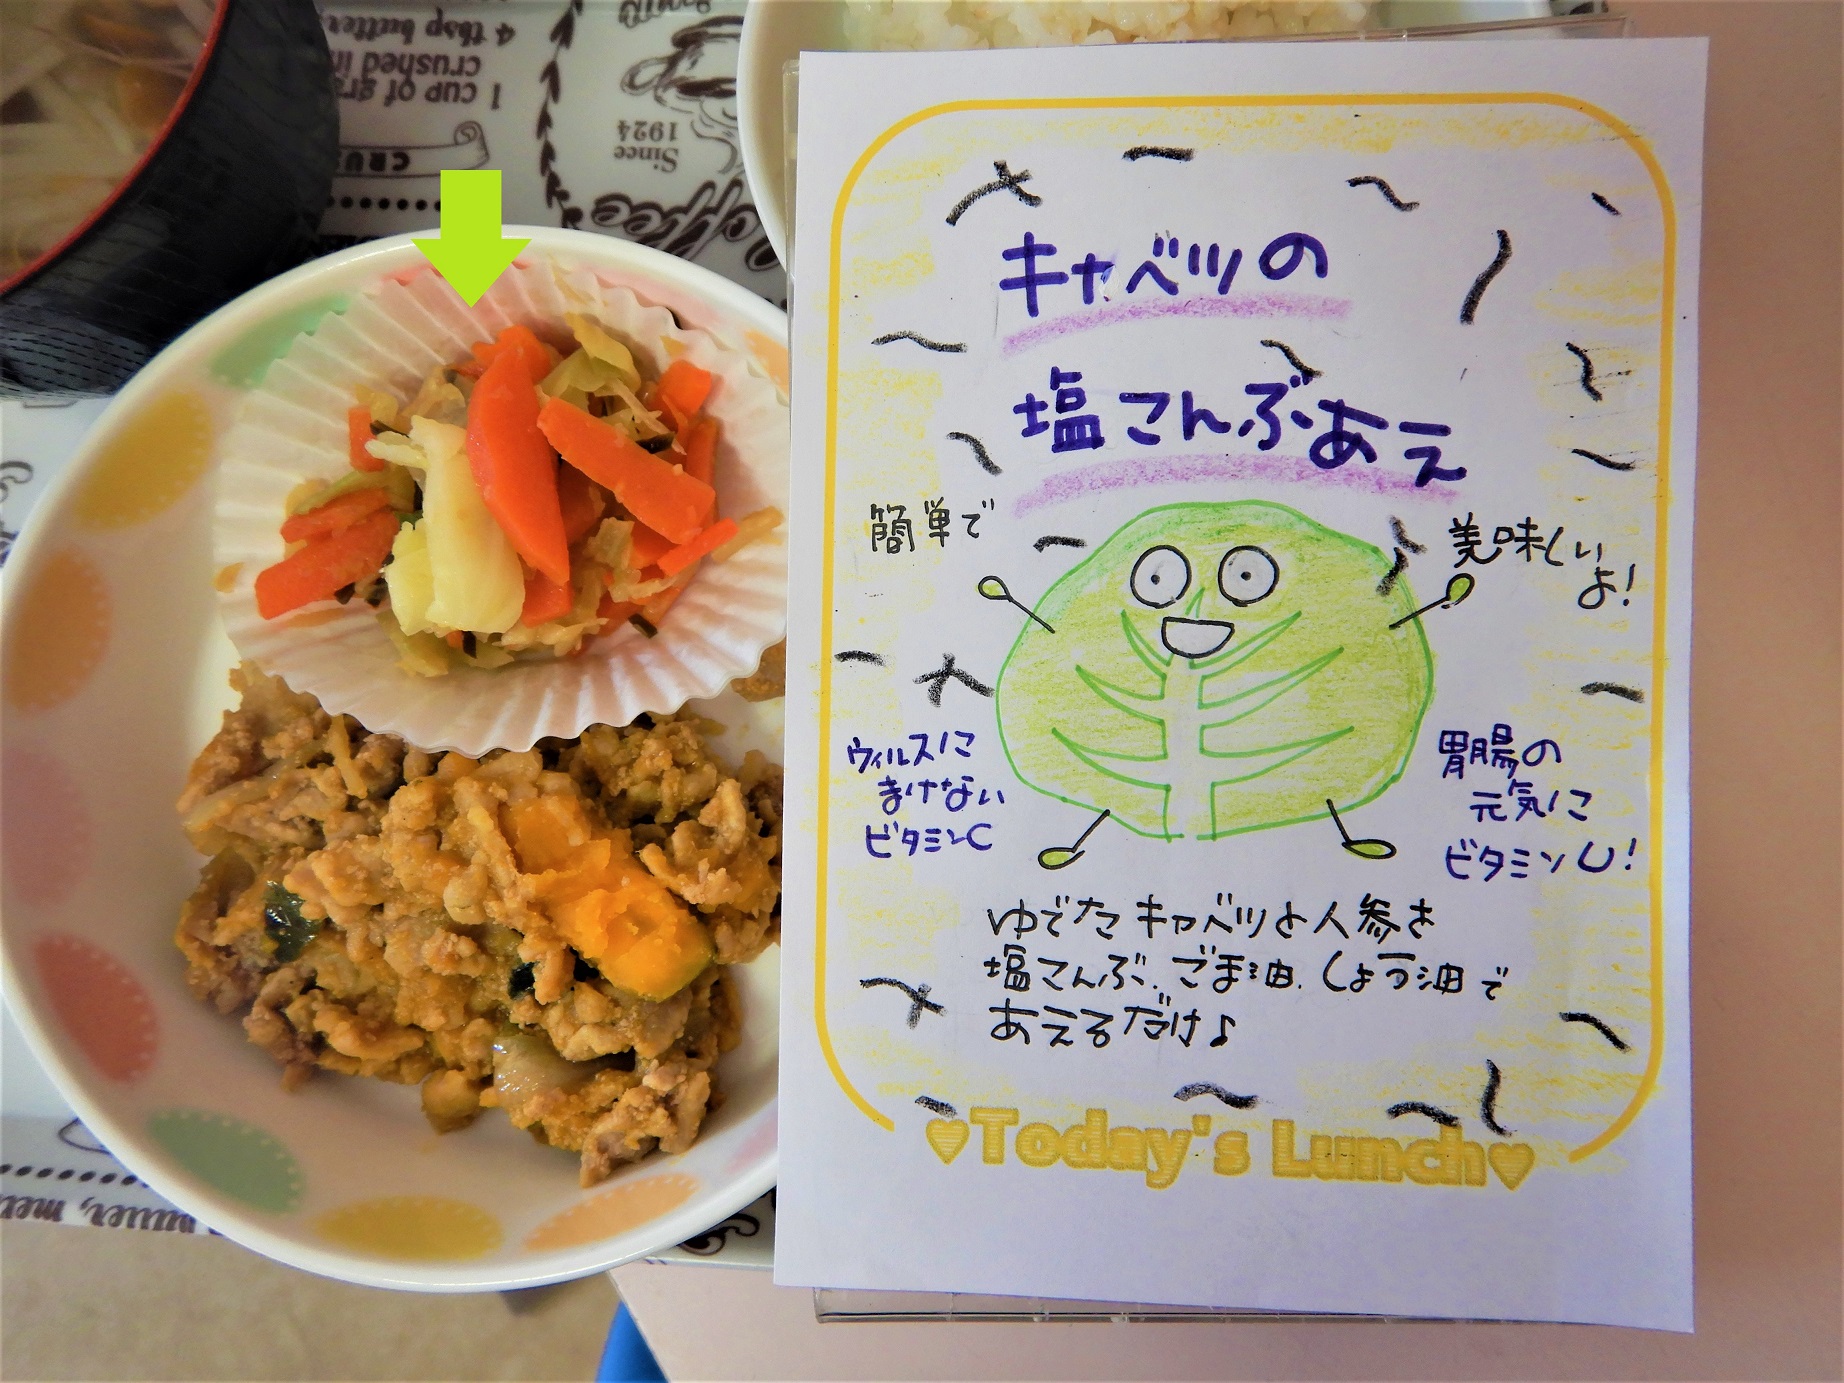 キャベツの
塩こんぶあえ
簡単で
美味しい
よ!
ウィルスに
まけない
ビタミンC
胃腸の
元気に
ビタミンU!
ゆでたキャベツと人参を
塩こんぶ、ごま油、しょう油で
あえるだけ♪
♥Today's Lunch♥
4 tbsp butter,
crushed in
1 cup of gra
CRUS
Since
1924
Coffee